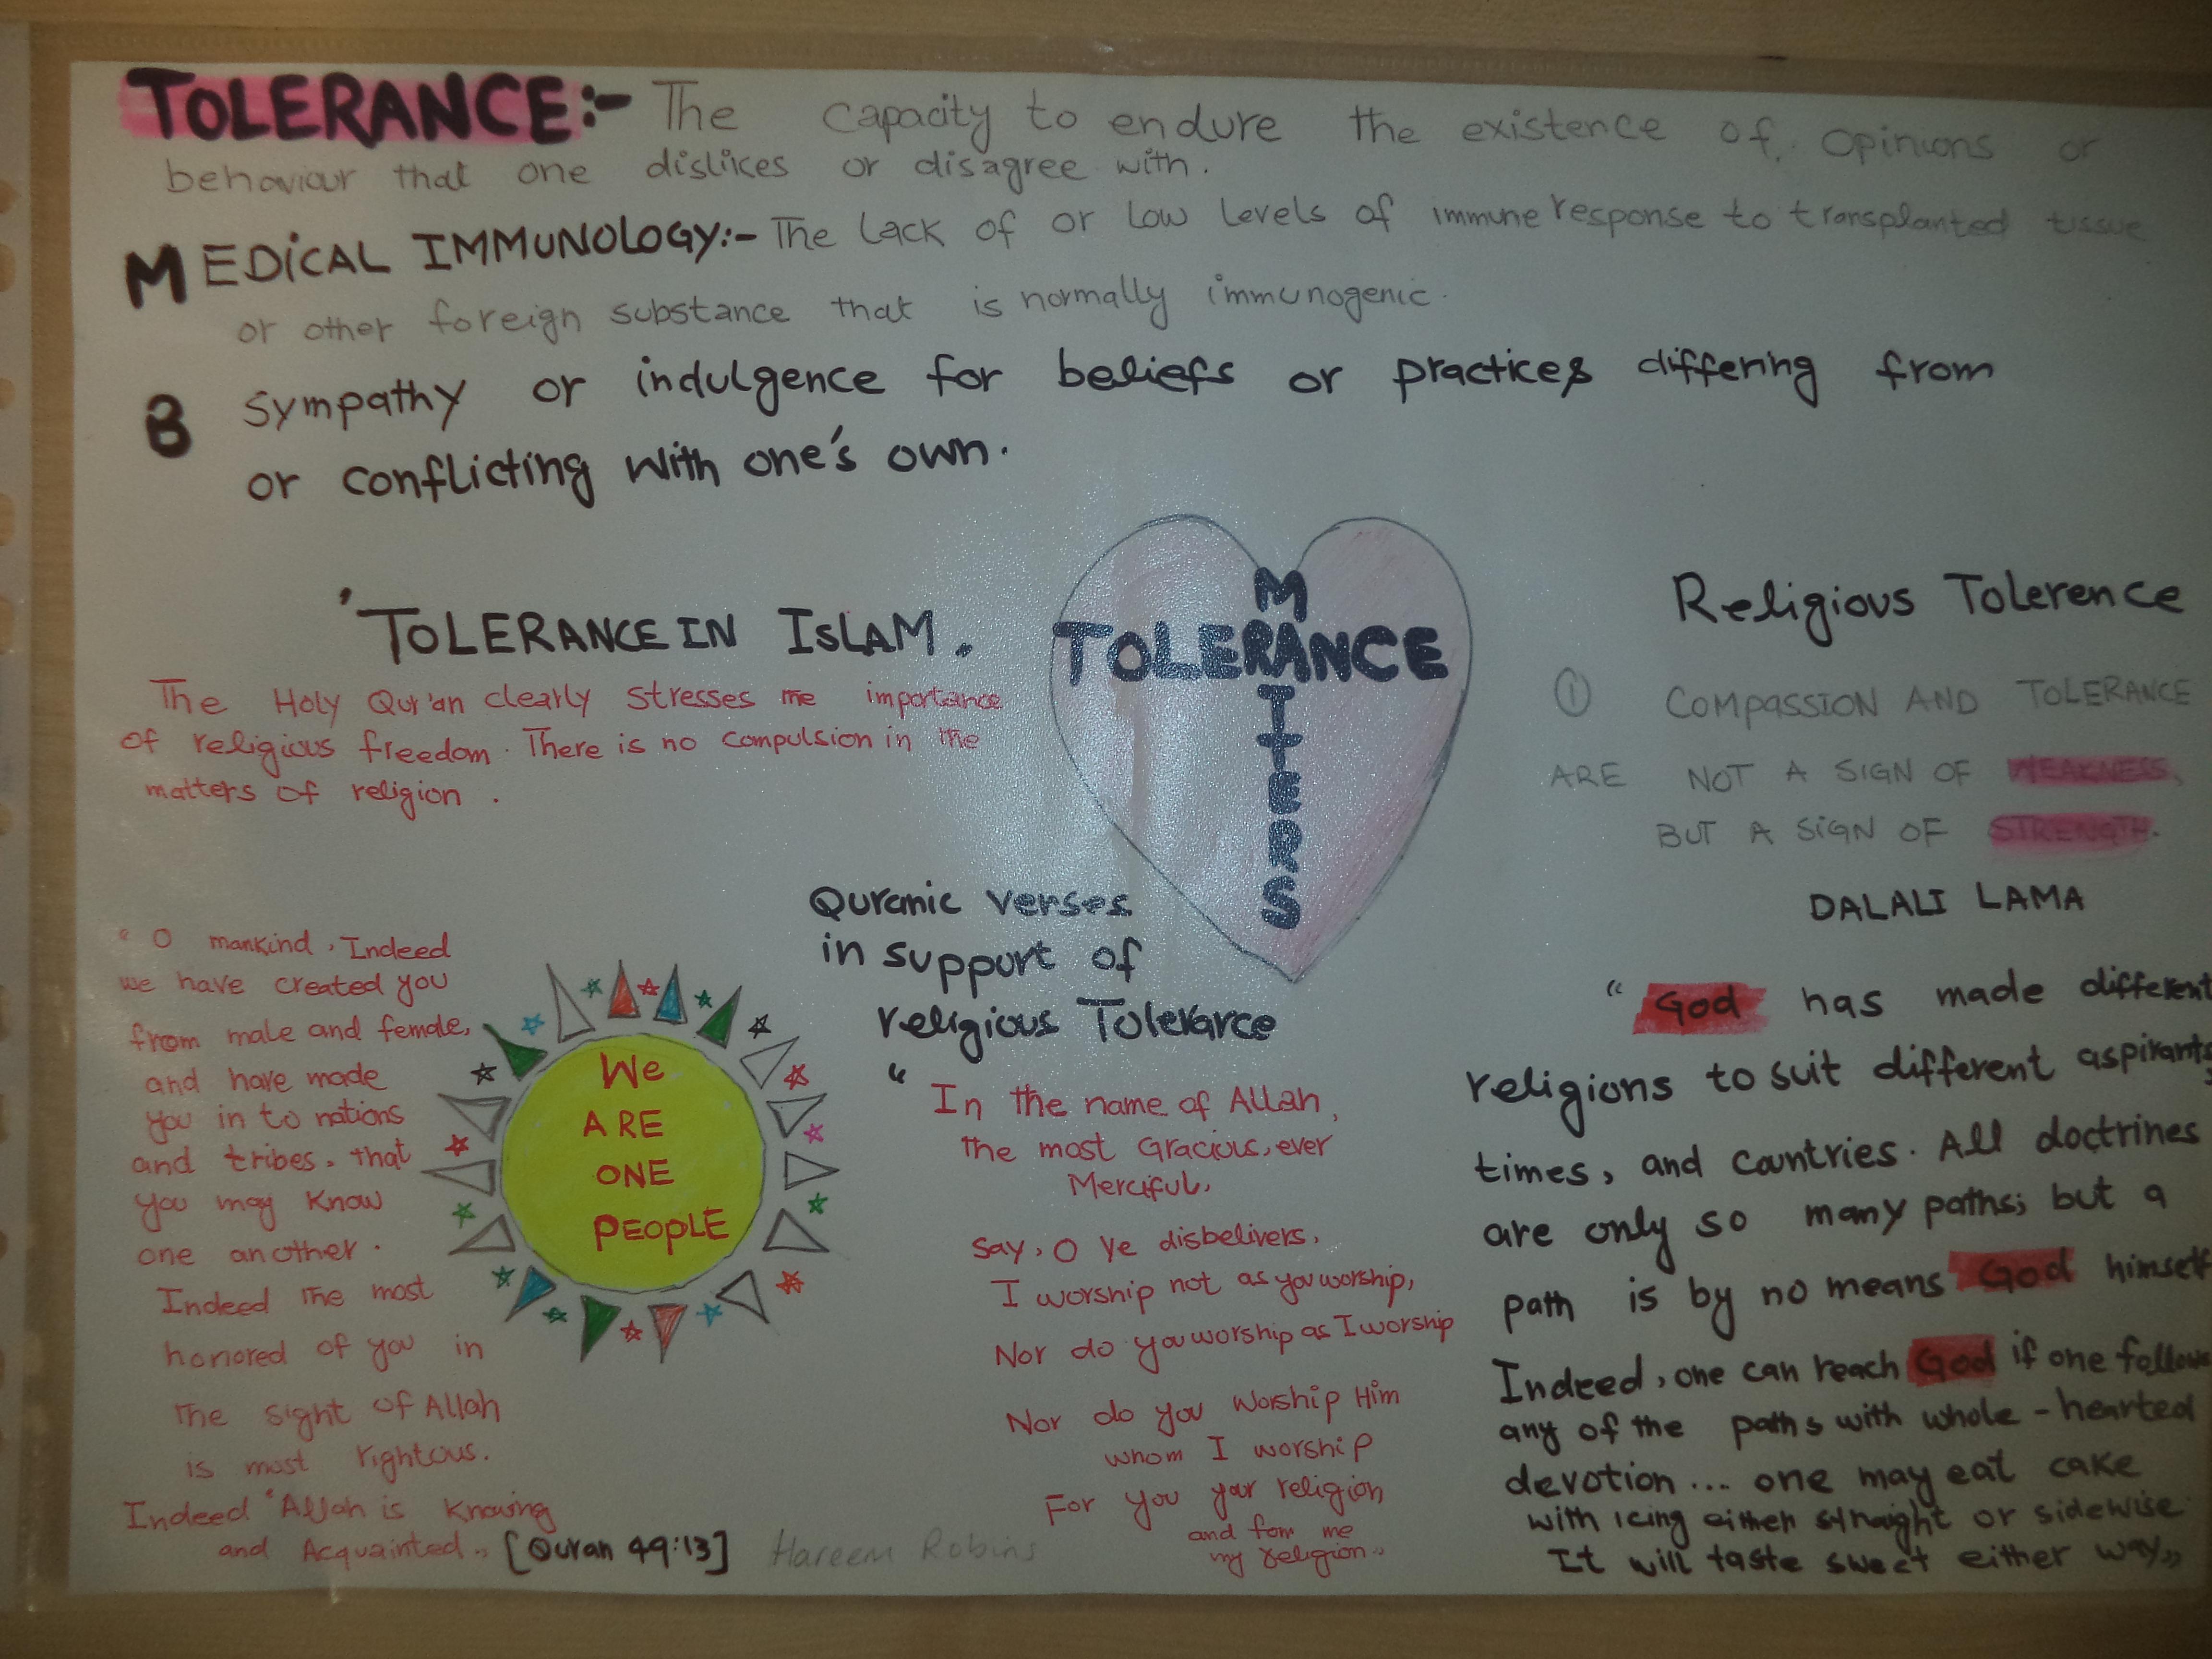 TOLERANCE:- The capacity to endure the existence of opinions or
behaviour that one dislikes or disagree with.
MEDICAL IMMUNOLOGY:- The lack of or low levels of immune response to transplanted tissue
or other foreign substance that is normally immunogenic.
B sympathy or indulgence for beliefs or practices differing from
or conflicting with one's own.
'TOLERANCE IN ISLAM.
The Holy Qur'an clearly stresses me importance
of religious freedom. There is no compulsion in the
matters of religion.
TOLERANCE
MATTERS
Religious Tolerence
① COMPASSION AND TOLERANCE
ARE NOT A SIGN OF WEAKNESS,
BUT A SIGN OF STRENGTH.
DALALI LAMA
"O mankind, Indeed
we have created you
from male and female,
and have made
you in to nations
and tribes. that
you may know
one another.
Indeed the most
honored of you in
the sight of Allah
is most rightous.
Indeed "Allah is knowing
and Acquainted." [Quran 49:13]
We
ARE
ONE
PEOPLE
Hareem Robins
Quranic verses
in support of
religious Tolerarce
"In the name of Allah,
the most Gracious, ever
Merciful,
Say, O ye disbelivers,
I worship not as you worship,
Nor do you worship as I worship
Nor do you worship Him
whom I worship
For you your religion,
and fom me
my religion"
"God has made different
religions to suit different aspirants,
times, and countries. All doctrines
are only so many paths; but a
path is by no means God himself
Indeed, one can reach God if one follows
any of the paths with whole-hearted
devotion... one may eat cake
with icing either straight or sidewise
It will taste sweet either way"